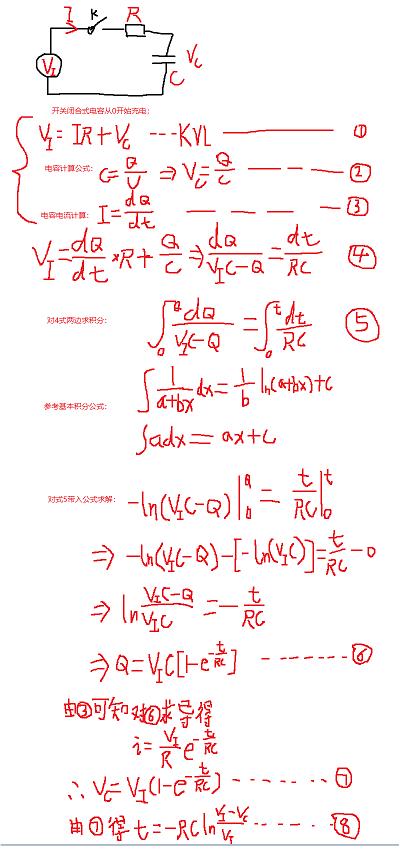 I K R
V_I V_C
C
开关闭合式电容从0开始充电:
V_I = IR + V_C ---KVL —— ①
电容计算公式: C = Q/U ⇒ V_C = Q/C —— ②
电容电流计算: I = dQ/dt —— ③
V_I = dQ/dt × R + Q/C ⇒ dQ/(V_I C-Q) = dt/RC ④
对4式两边求积分: ∫₀^Q dQ/(V_I C-Q) = ∫₀^t dt/RC ⑤
∫ 1/(a+bx) dx = 1/b ln(a+bx)+C
参考基本积分公式:
∫adx = ax+C
对式5带入公式求解: -ln(V_I C-Q)|₀^Q = t/RC|₀^t
⇒ -ln(V_I C-Q)-[-ln(V_I C)] = t/RC - 0
⇒ ln (V_I C-Q)/(V_I C) = -t/RC
⇒ Q = V_I C[1-e^(-t/RC)] ------- ⑥
由③可知对⑥求导得
i = V_I/R e^(-t/RC)
∴ V_C = V_I(1-e^(-t/RC)) ------- ⑦
由⑦得 t = -RC ln (V_I-V_C)/V_I ------ ⑧